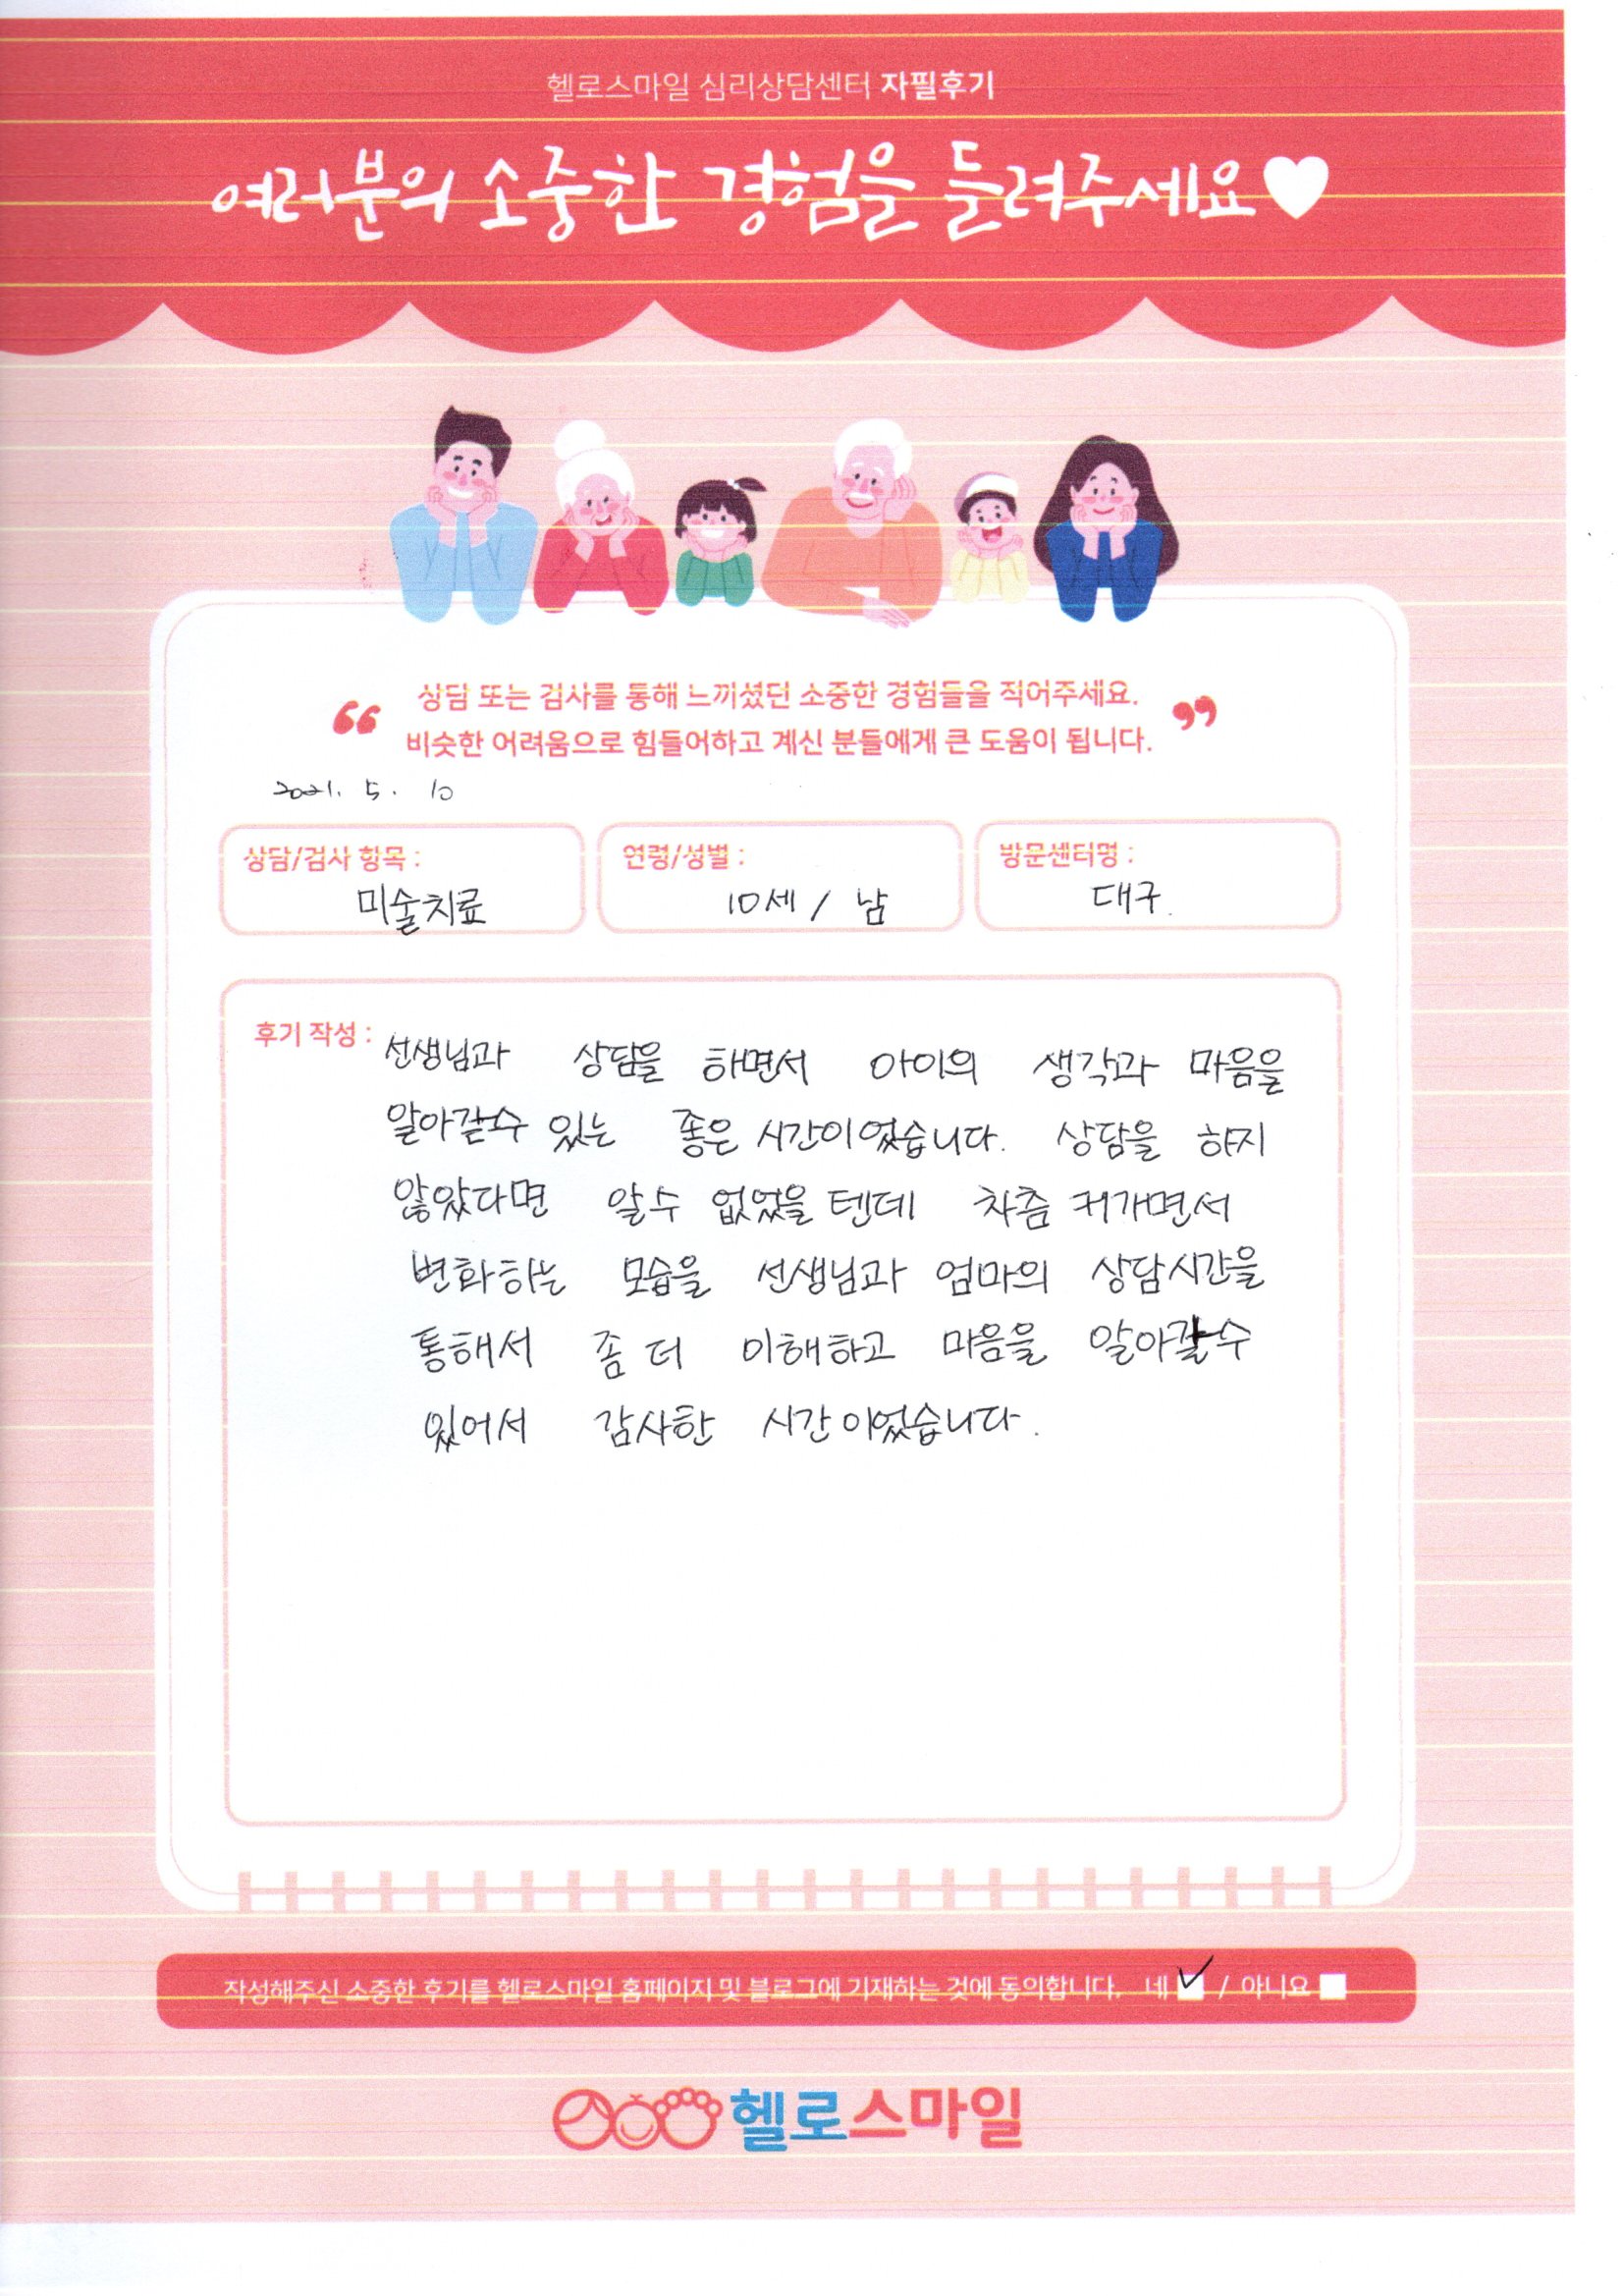 헬로스마일 심리상담센터 자필후기
여러분의 소중한 경험을 들려주세요♥
“ 상담 또는 검사를 통해 느끼셨던 소중한 경험들을 적어주세요. ”
비슷한 어려움으로 힘들어하고 계신 분들에게 큰 도움이 됩니다.
2021. 5. 10
상담/검사 항목 : 미술치료
연령/성별 : 10세 / 남
방문센터명 : 대구.
후기 작성 : 선생님과 상담을 하면서 아이의 생각과 마음을
알아갈수 있는 좋은 시간이었습니다. 상담을 하지
않았다면 알수 없었을 텐데 차츰 커가면서
변화하는 모습을 선생님과 엄마의 상담시간을
통해서 좀 더 이해하고 마음을 알아갈수
있어서 감사한 시간이었습니다.
작성해주신 소중한 후기를 헬로스마일 홈페이지 및 블로그에 기재하는 것에 동의합니다. 네 ✓ / 아니요
헬로스마일